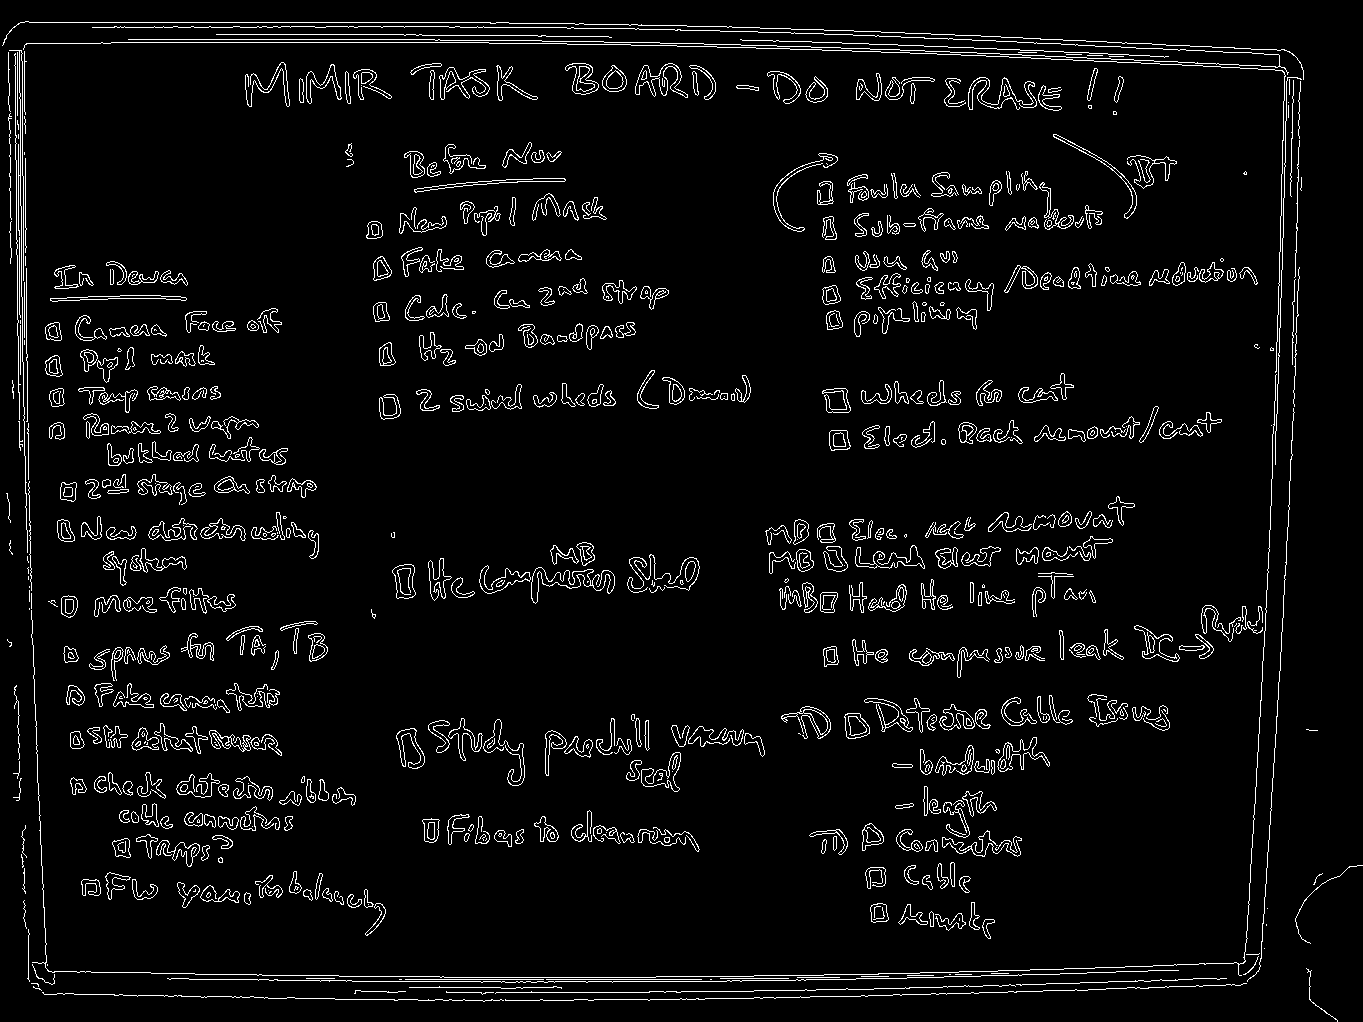 MIMIR TASK BOARD - DO NOT ERASE!!
In Dewar
Camera Face off
Pupil mask
Temp sensors
Remove 2 warm
bulkhead heaters
2nd stage Cu strap
New detector cooling
system
More filters
spares for TA, TB
Fake camera tests
detent sensor
Check detector ribbon
cable connectors
TRAPS?
FW balancing
Before Nov
New Pupil Mask
Fake Camera
Calc. Cu 2nd strap
H2-on Bandpass
2 swivel wheels (Dewar)
MB
He Compressor Shed
Study prechill vacuum
seal
Fibers to cleanroom
BT
Fowler Sampling
Sub-frame readouts
User GUI
Efficiency/Deadtime reduction
pipelining
Wheels for cart
Elect. Rack remount/cart
MB Elec. rack remount
MB Leach Elect mount
MB Hard He line pTan
He compressor leak DC →
TD Detector Cable Issues
- bandwidth
- length
TD Connectors
Cable
remake